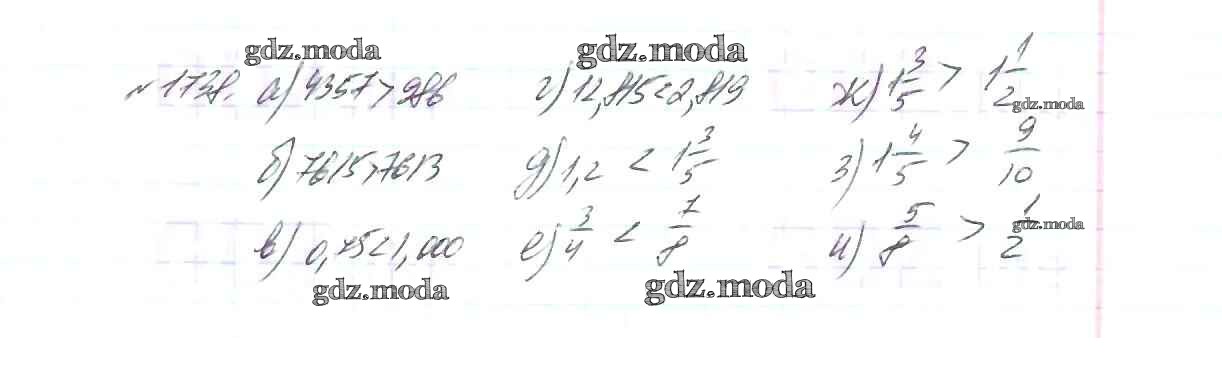 gdz.moda gdz.moda
№1738. а) 4357 > 986 г) 12,815 < 2,819 ж) 1 3/5 > 1 1/2 gdz.moda
б) 7615 > 7613 д) 1,2 < 1 3/5 з) 1 4/5 > 9/10
в) 0,75 < 1,000 е) 3/4 < 7/8 и) 5/8 > 1/2 gdz.moda
gdz.moda gdz.moda